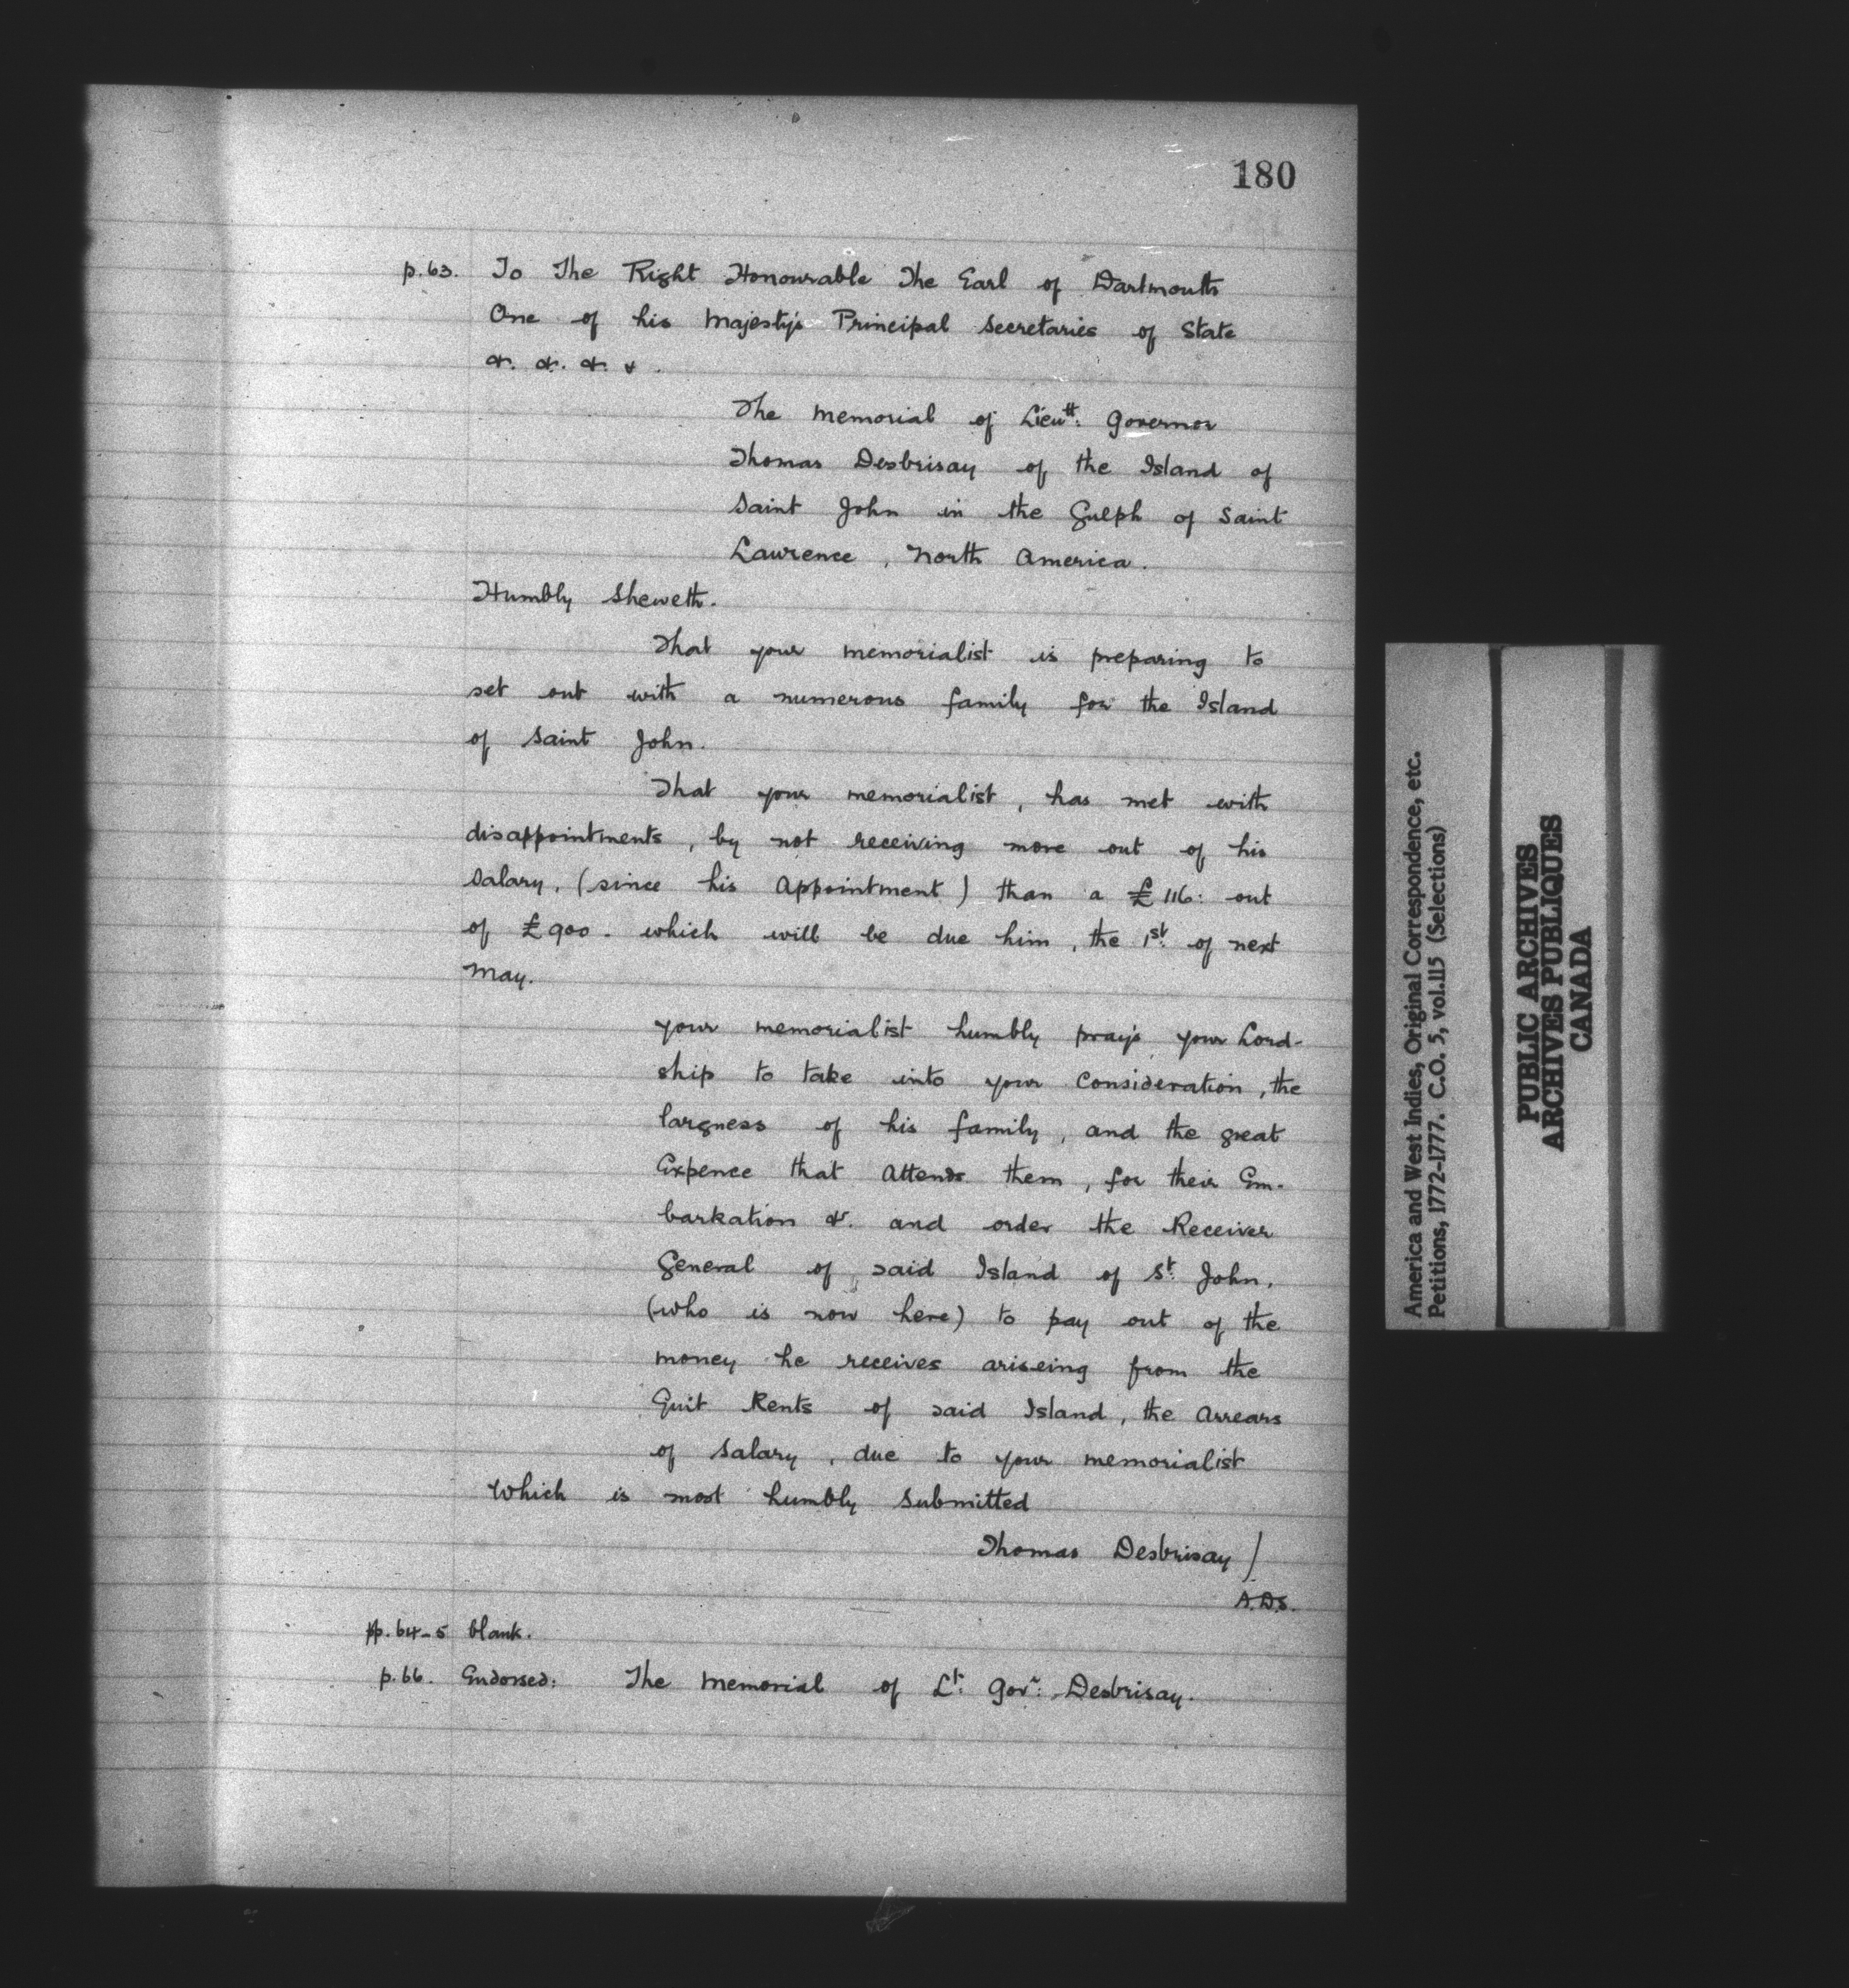 180
p. 63. To The Right Honourable The Earl of Dartmouth
One of his Majesty's Principal Secretaries of State
&. &. &. &.
The Memorial of Lieutt: Governor
Thomas Desbrisay of the Island of
Saint John in the Gulph of Saint
Lawrence, North America.
Humbly Sheweth.
That your memorialist is preparing to
set out with a numerous family for the Island
of Saint John.
That your memorialist, has met with
disappointments, by not receiving more out of his
Salary, (since his Appointment) than a £116: out
of £900. which will be due him, the 1st: of next
May.
Your memorialist humbly pray's your Lord-
ship to take into your Consideration, the
largness of his family, and the great
Expence that Attends them, for their Em-
barkation &. and order the Receiver
General of said Island of St: John,
(who is now here) to pay out of the
money he receives ariseing from the
Quit Rents of said Island, the Arrears
of Salary, due to your memorialist
Which is most humbly Submitted
Thomas Desbrisay /
A.D.S.
pp. 64-5 blank.
p. 66. Endorsed: The Memorial of Lt: Govr: Desbrisay.
America and West Indies, Original Correspondence, etc.
Petitions, 1772-1777. C.O. 5, vol.115 (Selections)
PUBLIC ARCHIVES
ARCHIVES PUBLIQUES
CANADA